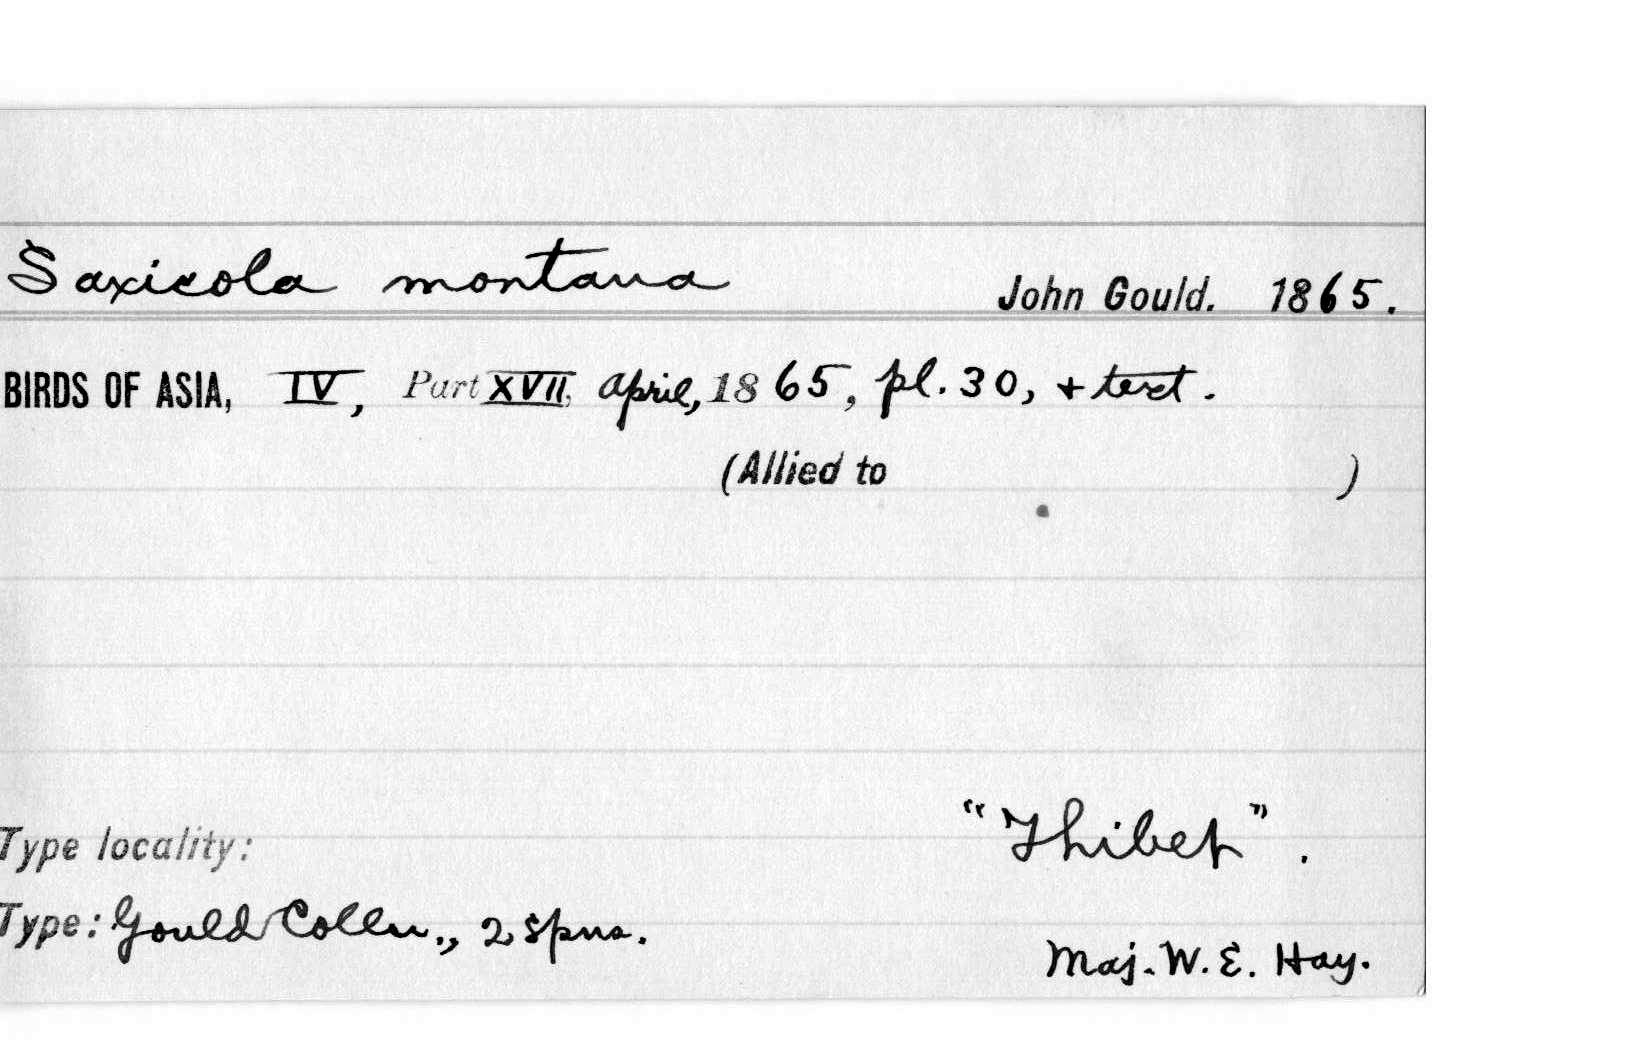 Saxicola montana John Gould. 1865.
BIRDS OF ASIA, IV, Part XVII, April, 1865, pl. 30, + text.
(Allied to )
Type locality: "Thibet".
Type: Gould Colln., 2 spns.
Maj. W. E. Hay.